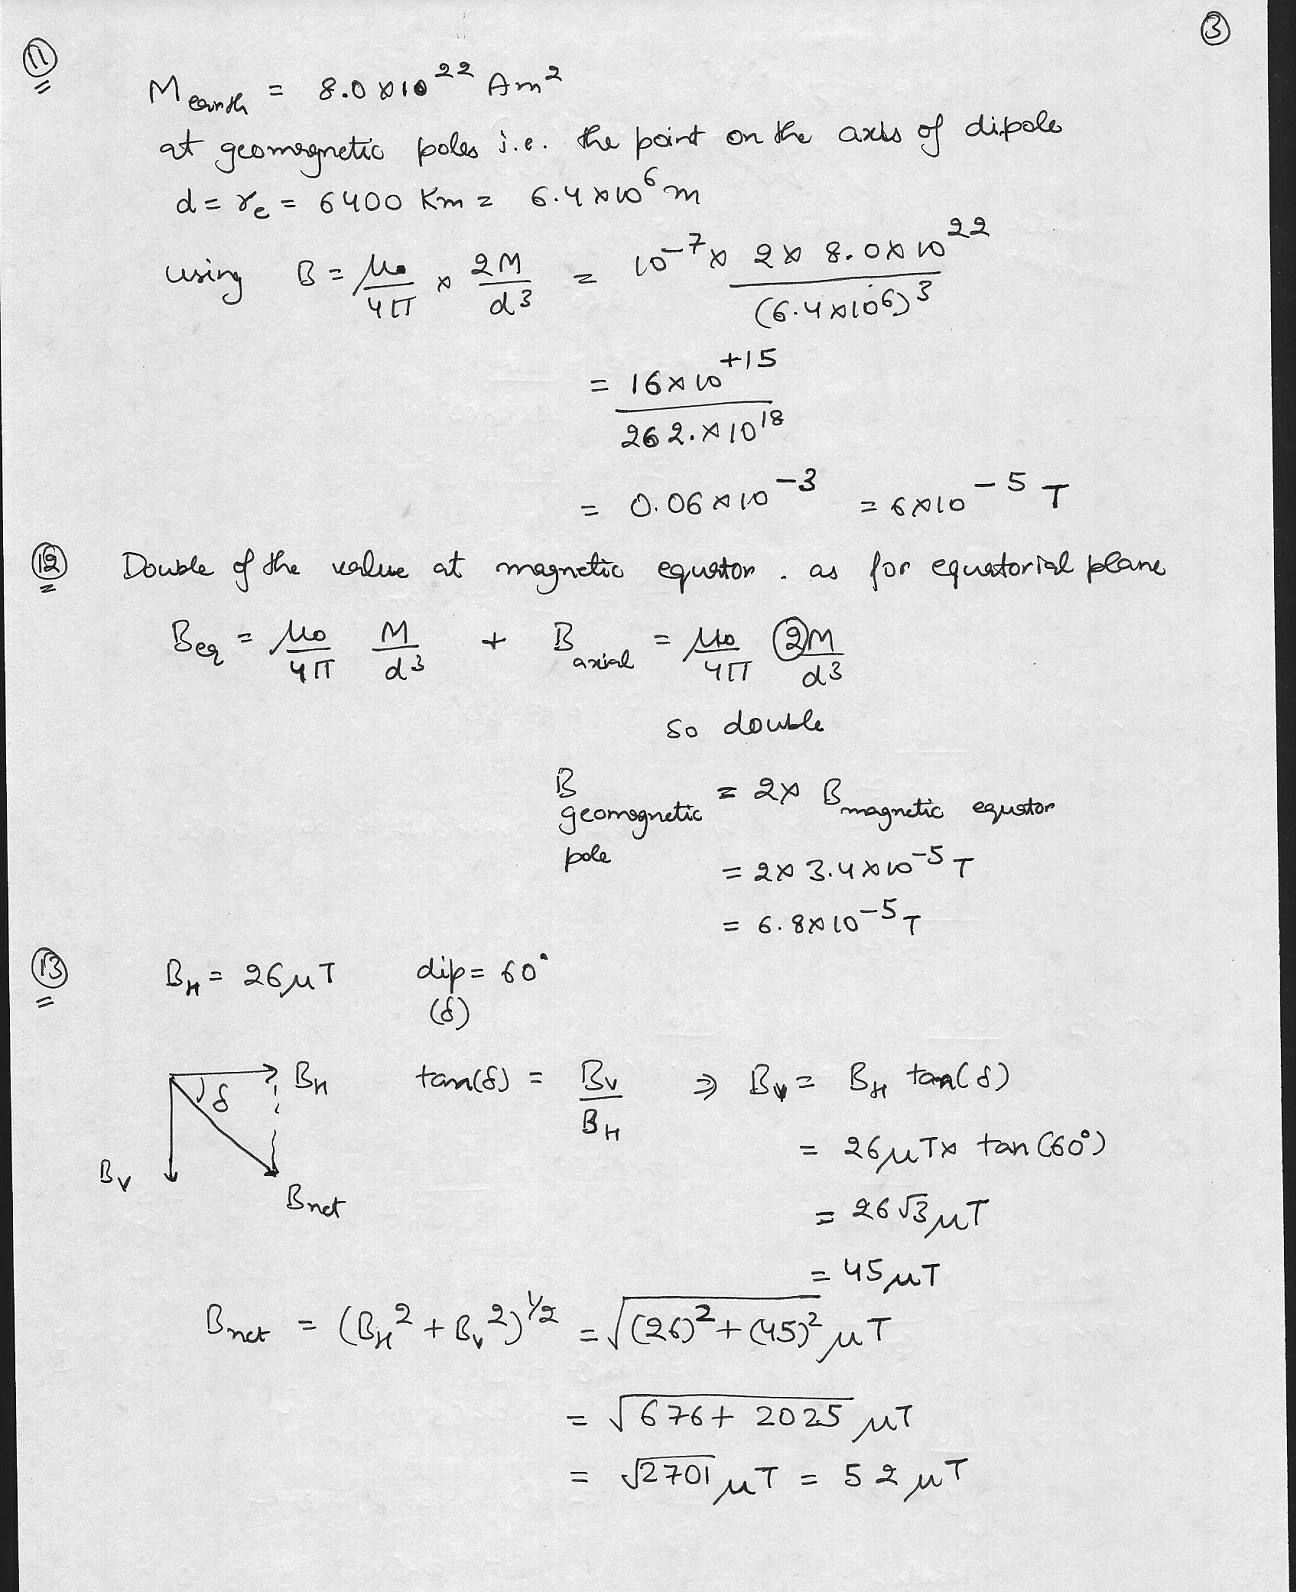 ③
⑪
M earth = 8.0 × 10^22 Am^2
at geomagnetic poles i.e. the point on the axis of dipole
d = r_e = 6400 Km = 6.4 × 10^6 m
using B = μ₀/4π × 2M/d^3 = 10^-7 × 2 × 8.0 × 10^22/(6.4 × 10^6)^3
= 16 × 10^+15/262. × 10^18
= 0.06 × 10^-3 = 6 × 10^-5 T
⑫ Double of the value at magnetic equator . as for equatorial plane
B_eq = μ₀/4π M/d^3 + B_axial = μ₀/4π ②M/d^3
so double
B geomagnetic pole = 2 × B magnetic equator
= 2 × 3.4 × 10^-5 T
= 6.8 × 10^-5 T
⑬ B_H = 26 μT dip = 60°
(δ)
B_H δ B_V B_net
tan(δ) = B_V/B_H ⇒ B_V = B_H tan(δ)
= 26 μT × tan(60°)
= 26√3 μT
= 45 μT
B_net = (B_H^2 + B_V^2)^1/2 = √(26)^2 + (45)^2 μT
= √676 + 2025 μT
= √2701 μT = 52 μT